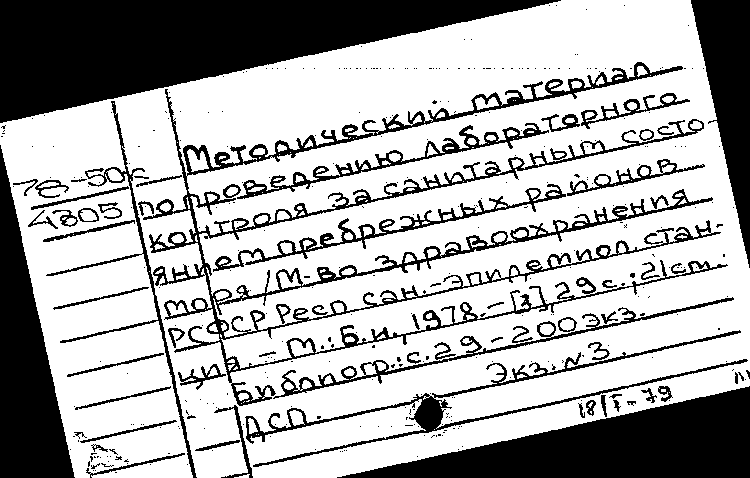 Методический материал
78-50с по проведению лабораторного
4805 контроля за санитарным состо-
янием пребрежных районов
моря / М-во здравоохранения
РСФСР, Респ сан.-эпидемиол. стан-
ция. - М.: Б.и., 1978. - [3], 29 с.; 21 см.:
Библиогр.: с. 29. - 200 экз.
Экз. N 3.
ДСП.
18/I-79